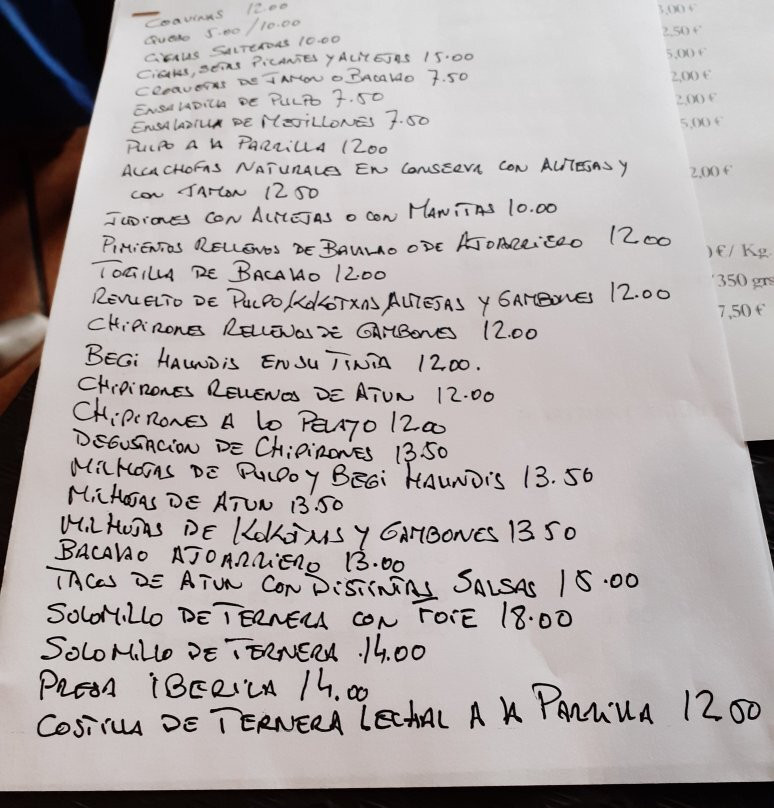 COQUINAS 12.00
QUESO 5.00/10.00
SALTEADAS 10.00
SETAS PICANTES Y ALMEJAS 15.00
CROQUETAS DE JAMON O BACALAO 7.50
ENSALADILLA DE PULPO 7.50
ENSALADILLA DE MEJILLONES 7.50
PULPO A LA PARRILLA 1200
ALCACHOFAS NATURALES EN CONSERVA CON ALMEJAS Y
CON JAMON 12 50
JUDIONES CON ALMEJAS O CON MANITAS 10.00
PIMIENTOS RELLENOS DE BACALAO O DE AJOARRIERO 12.00
TORTILLA DE BACALAO 12.00
REVUELTO DE PULPO/KOKOTXAS/ALMEJAS Y GAMBONES 12.00
CHIPIRONES RELLENOS DE GAMBONES 12.00
BEGI HAUNDIS EN SU TINTA 12.00.
CHIPIRONES RELLENOS DE ATUN 12.00
CHIPIRONES A LO PELAYO 12.00
DEGUSTACION DE CHIPIRONES 13.50
MILHOJAS DE PULPO Y BEGI HAUNDIS 13.50
MILHOJAS DE ATUN 13.50
MILHOJAS DE KOKOTXAS Y GAMBONES 13 50
BACALAO AJOARRIERO 13.00
TACOS DE ATUN CON DISTINTAS SALSAS 15.00
SOLOMILLO DE TERNERA CON FOIE 18.00
SOLOMILLO DE TERNERA .14.00
PRESA IBERICA 14.00
COSTILLA DE TERNERA LECHAL A LA PARRILLA 12 00
3,00 €
2,50 €
5,00 €
2,00 €
2,00 €
5,00 €
2,00 €
€/ Kg
350 grs
7,50 €